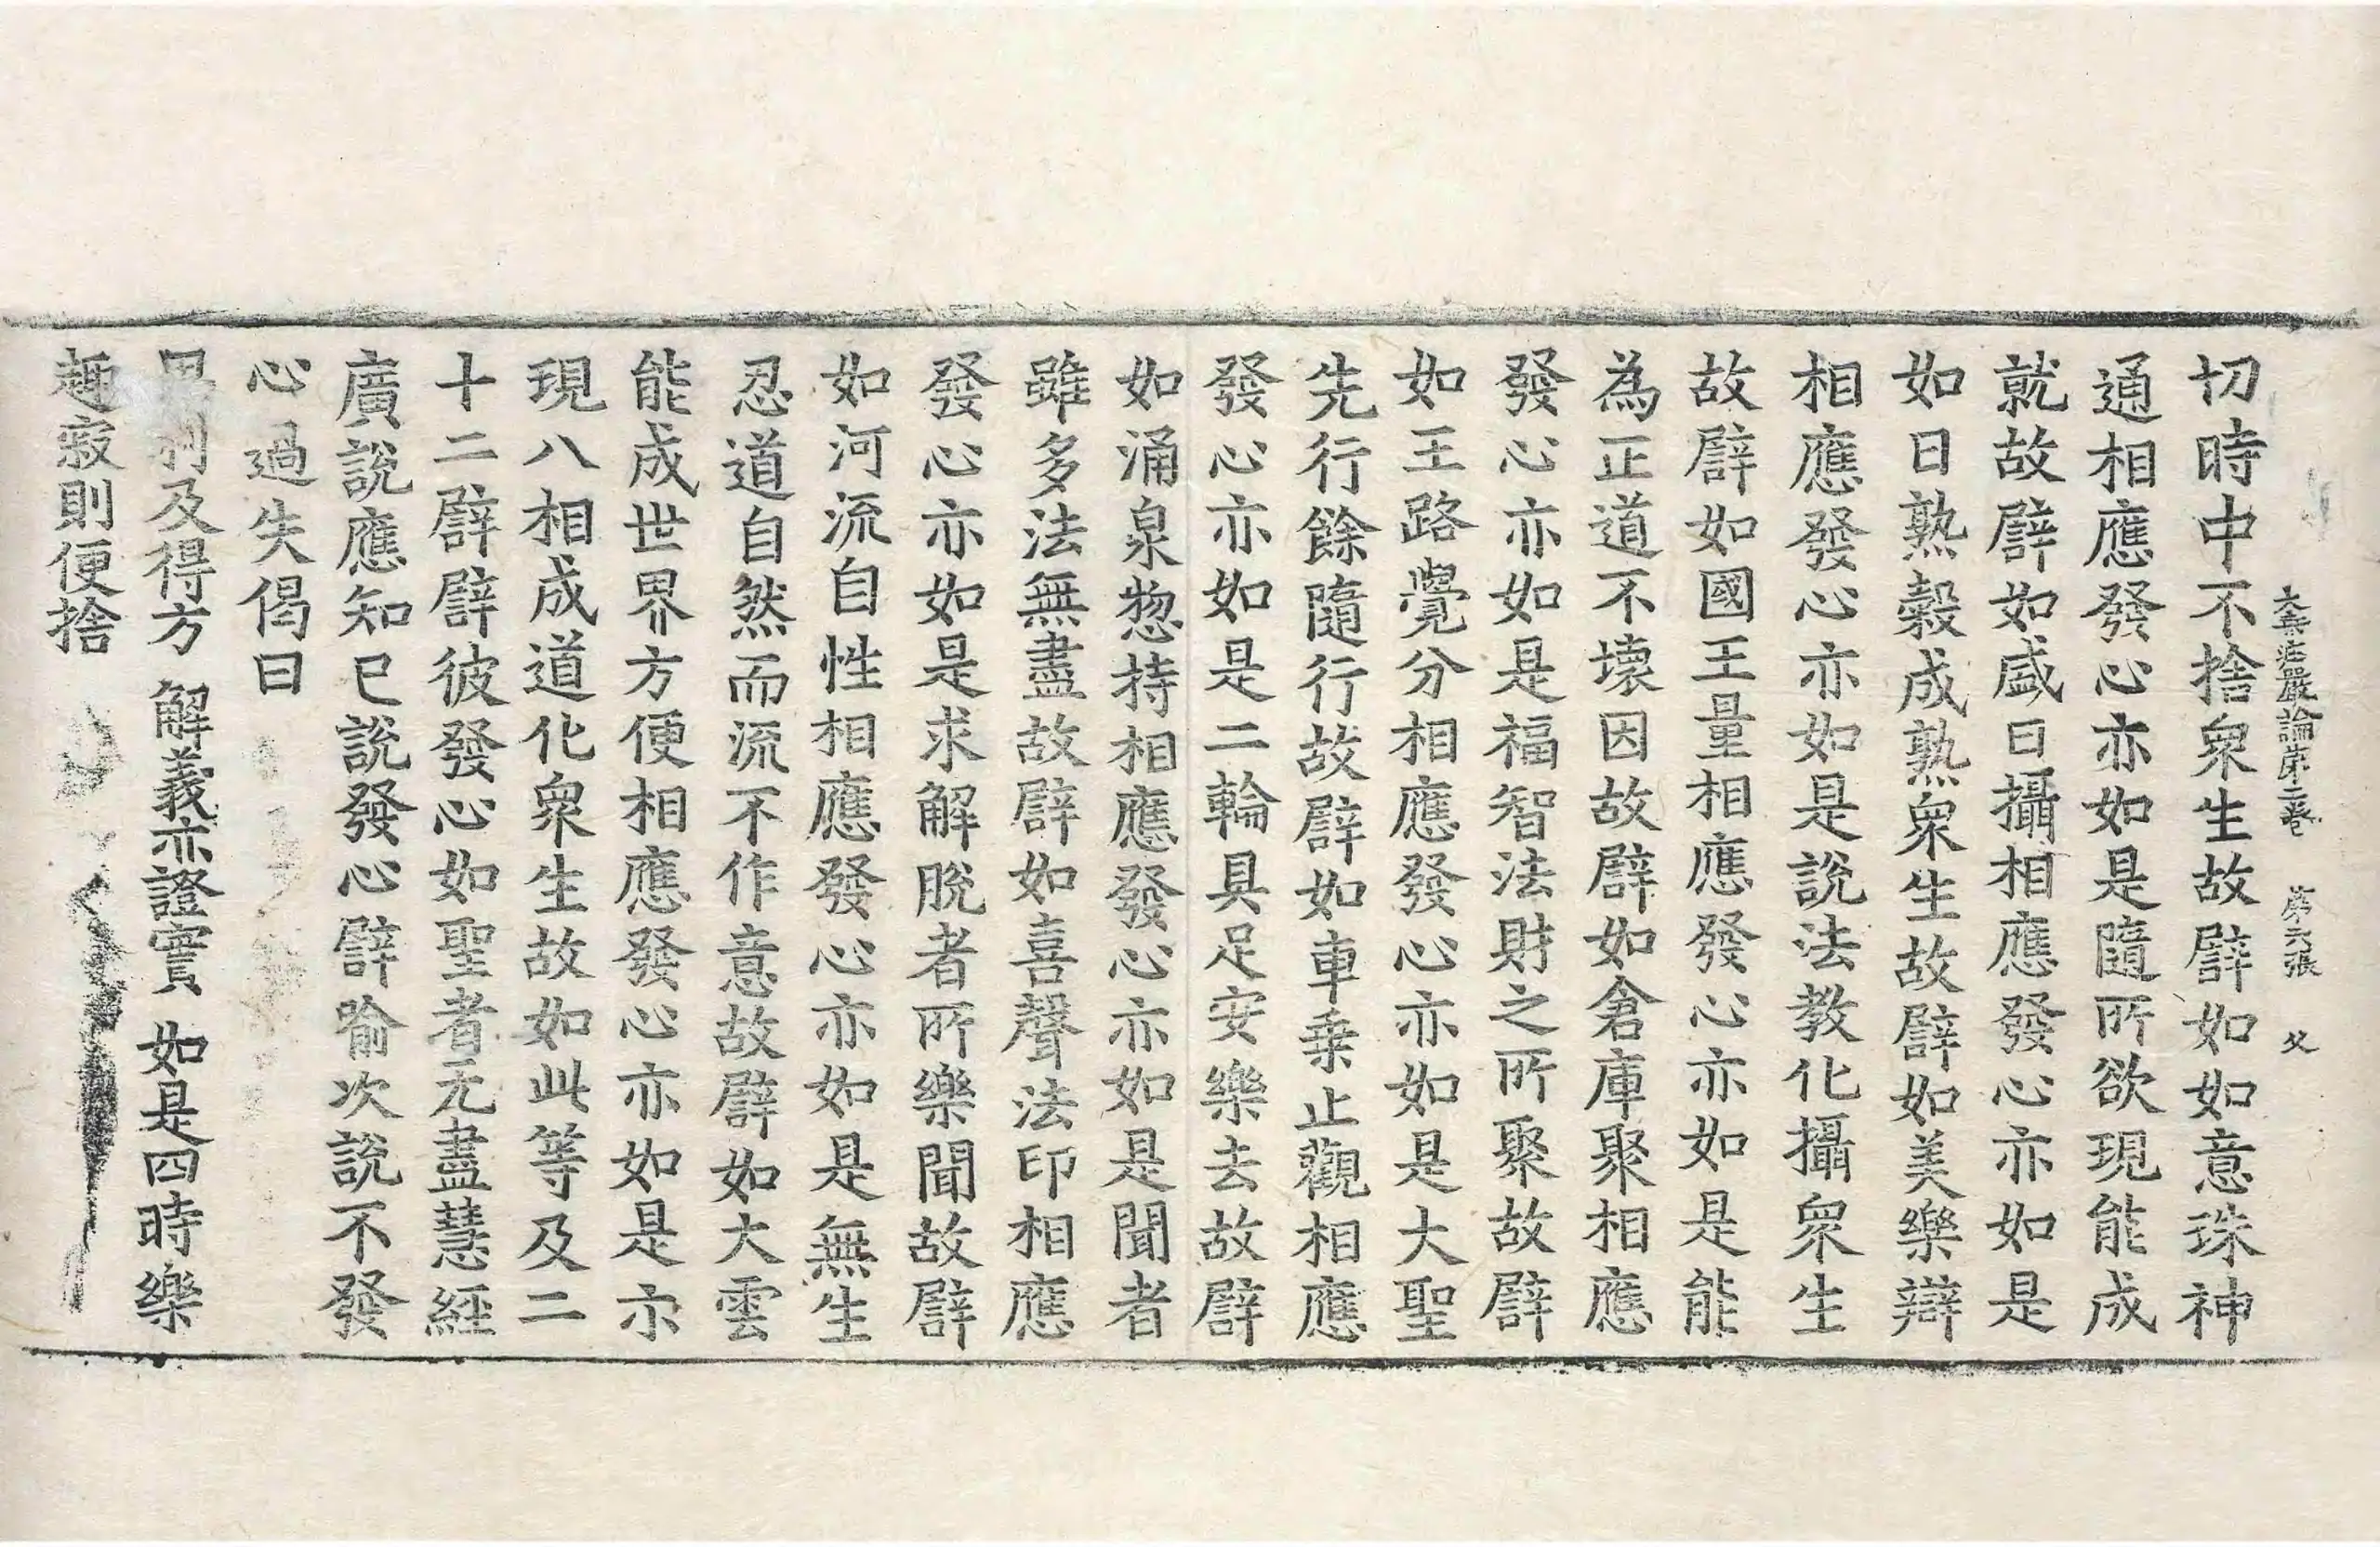 大乘莊嚴論第二卷 第六張 父
切時中不捨衆生故譬如如意珠神
通相應發心亦如是隨所欲現能成
就故譬如盛日攝相應發心亦如是
如日熟穀成熟衆生故譬如美樂辯
相應發心亦如是說法教化攝衆生
故譬如國王量相應發心亦如是能
為正道不壞因故譬如倉庫聚相應
發心亦如是福智法財之所聚故譬
如王路覺分相應發心亦如是大聖
先行餘隨行故譬如車乗止觀相應
發心亦如是二輪具足安樂去故譬
如涌泉惣持相應發心亦如是聞者
雖多法無盡故譬如喜聲法印相應
發心亦如是求解脫者所樂聞故譬
如河流自性相應發心亦如是無生
忍道自然而流不作意故譬如大雲
能成世界方便相應發心亦如是示
現八相成道化衆生故如此等及二
十二譬譬彼發心如聖者无盡慧經
廣說應知已說發心譬喻次說不發
心過失偈曰
思利及得方 解義亦證實 如是四時樂
趣寂則便捨